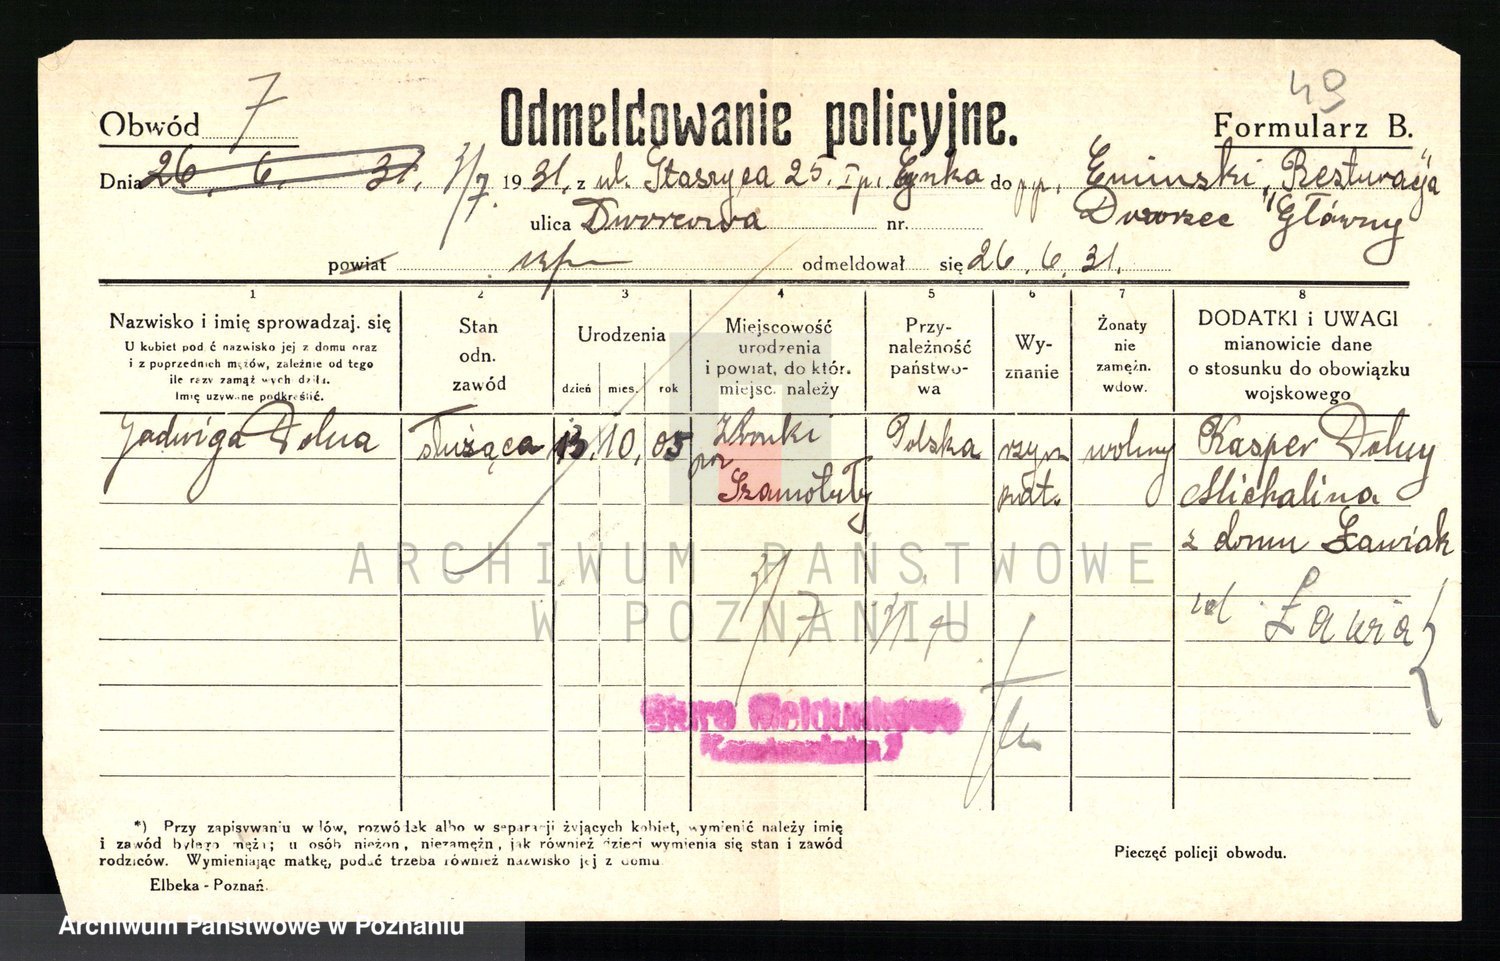 49
Obwód 7 Odmeldowanie policyjne. Formularz B.
Dnia 26. 6. 31. 3/7. 1931. z ul. Staszyca 25. I p. do pp. Eminski "Resturacja
ulica Dworcowa nr. Dworzec Główny"
powiat odmeldował się 26. 6. 31.
1 2 3 4 5 6 7 8
Nazwisko i imię sprowadzaj. się
U kobiet pod ć nazwisko jej z domu oraz
i z poprzednich mężów, zależnie od tego
ile razy zamąż wych dziła.
Imię używane podkreślić.
Stan
odn.
zawód
Urodzenia
dzień mies. rok
Miejscowość
urodzenia
i powiat, do któr.
miejsc. należy
Przy-
należność
państwo-
wa
Wy-
znanie
Żonaty
nie
zamężn.
wdow.
DODATKI i UWAGI
mianowicie dane
o stosunku do obowiązku
wojskowego
Jadwiga Dolna służąca 13. 10. 05 Wronki Polska rzym wolny Kasper Dolny
pow Szamotuły kat. Michalina
z domu Ławiak
ARCHIWUM PAŃSTWOWE
W POZNANIU
3/7 31 7
Ławia
Biuro Meldunkowe
*) Przy zapisywaniu w łów, rozwódek albo w separacji żyjących kobiet, wymienić należy imię
i zawód byłego męża; u osób nieżon, niezamężn, jak również dzieci wymienia się stan i zawód
rodziców. Wymieniając matkę, podać trzeba również nazwisko jej z domu
Elbeka - Poznań.
Pieczęć policji obwodu.
Archiwum Państwowe w Poznaniu